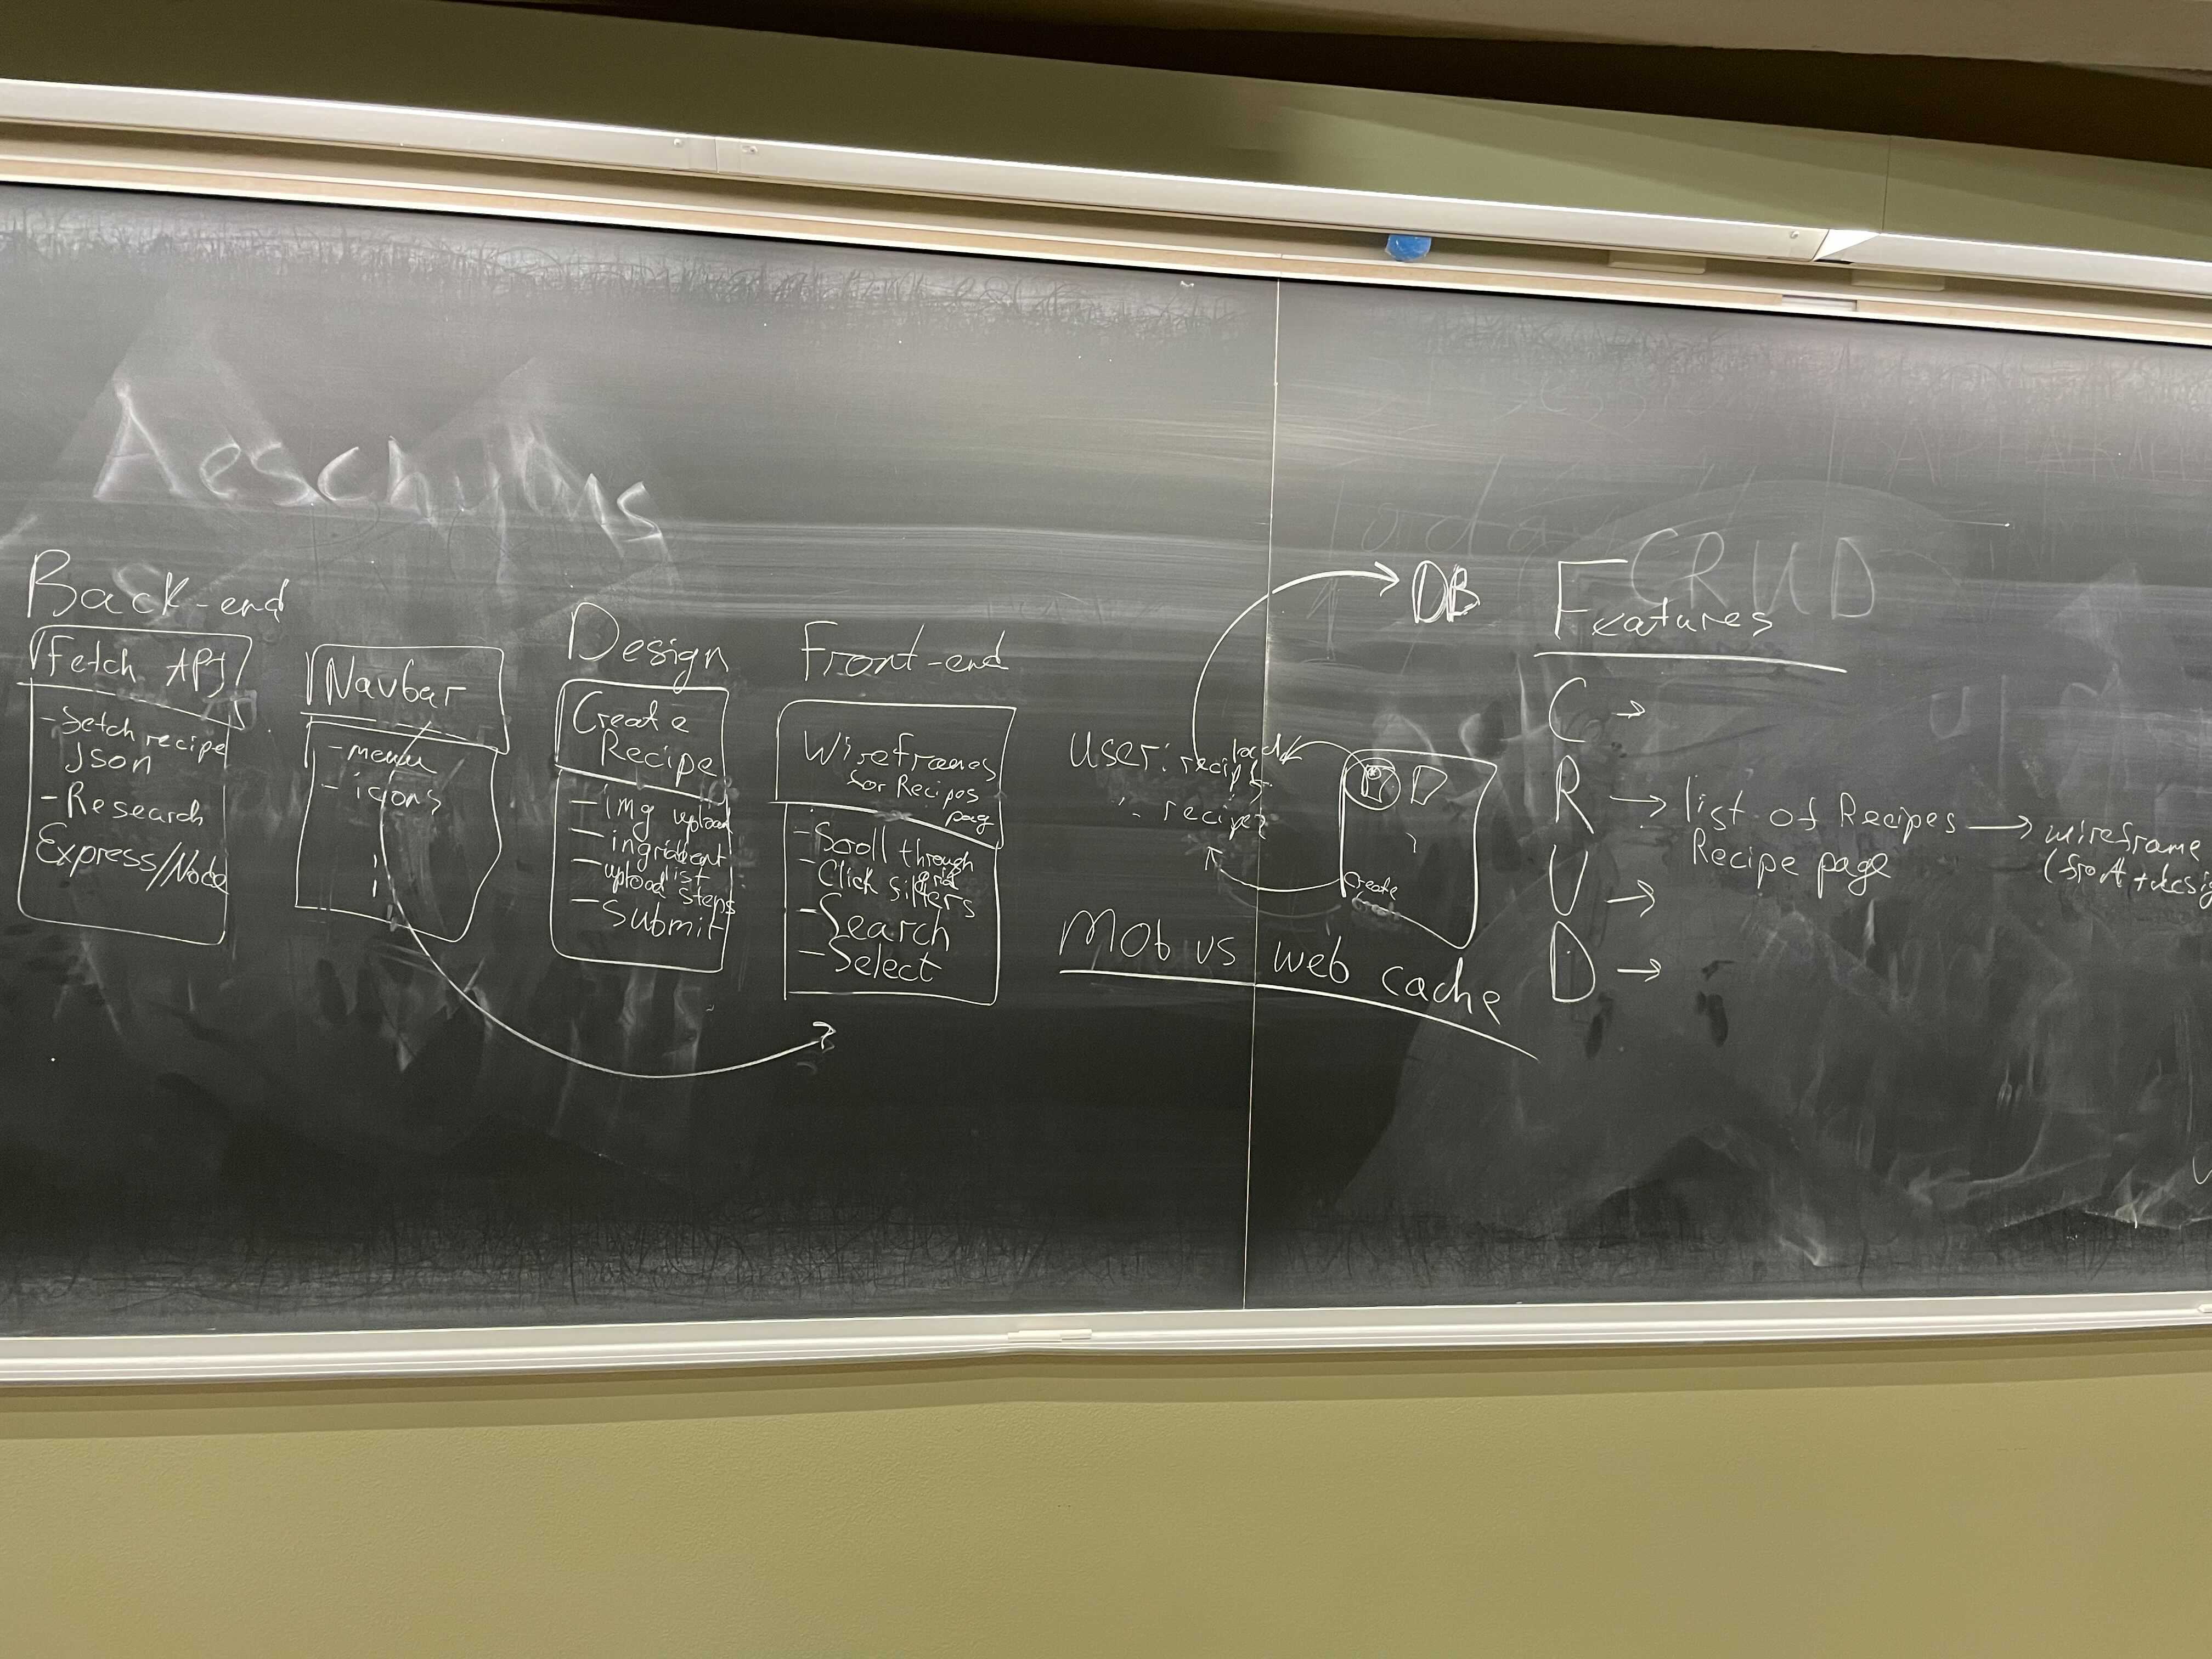 Aeschylus
Back-end
Fetch API
- fetch recipe
Json
- Research
Express/Node
Navbar
- menu
- icons
Design
Create
Recipe
- img upload
- ingredient
list
- upload steps
- Submit
Front-end
Wireframes
for Recipes
page
- Scroll through
grid
- Click filters
- Search
- Select
DB
user: recipe
: recipe
Create
Mob vs web cache
CRUD
Features
C →
R → list of Recipes → wireframe
Recipe page
U →
D →